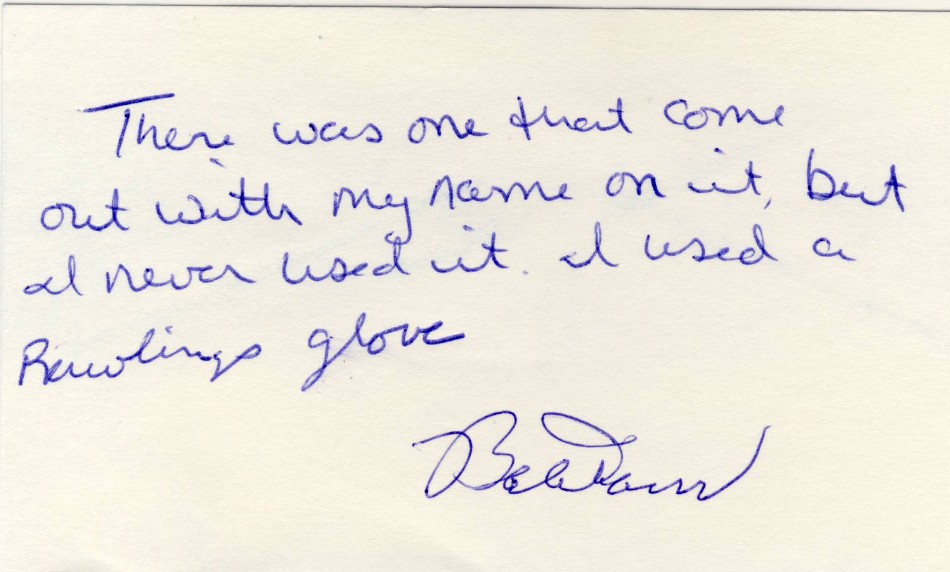 There was one that come
out with my name on it, but
I never used it. I used a
Rawlings glove